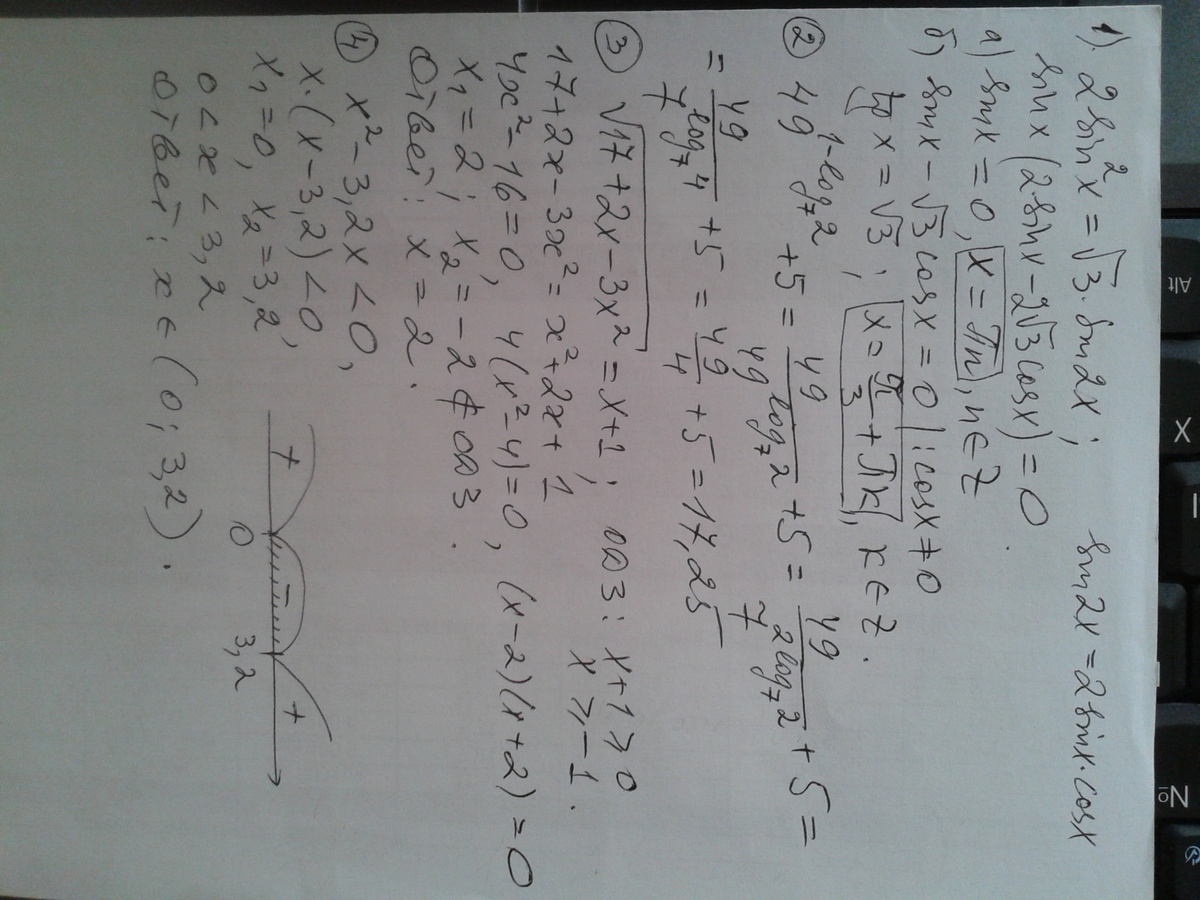 1) 2 sin²x = √3 · sin2x ; sin2x = 2 sinx · cosx
sinx (2 · sinx − 2√3 cosx) = 0
а) sinx = 0, x = πn, n ∈ Z
б) sinx − √3 cosx = 0 | : cosx ≠ 0
tg x = √3 ; x = π/3 + πk, k ∈ Z.
② 49^(1−log₇2) + 5 = 49/49^(log₇2) + 5 = 49/7^(2log₇2) + 5 =
= 49/7^(log₇4) + 5 = 49/4 + 5 = 17,25
③ √(17 + 2x − 3x²) = x + 1 ; ОДЗ: x + 1 ⩾ 0
x ⩾ −1.
17 + 2x − 3x² = x² + 2x + 1
4x² − 16 = 0, 4(x² − 4) = 0, (x − 2)(x + 2) = 0
x₁ = 2 ; x₂ = −2 ∉ ОДЗ.
Ответ: x = 2.
④ x² − 3,2x < 0,
x · (x − 3,2) < 0
x₁ = 0, x₂ = 3,2,
0 < x < 3,2
Ответ: x ∈ (0; 3,2).
+ − +
0 3,2
Alt
X
№
®